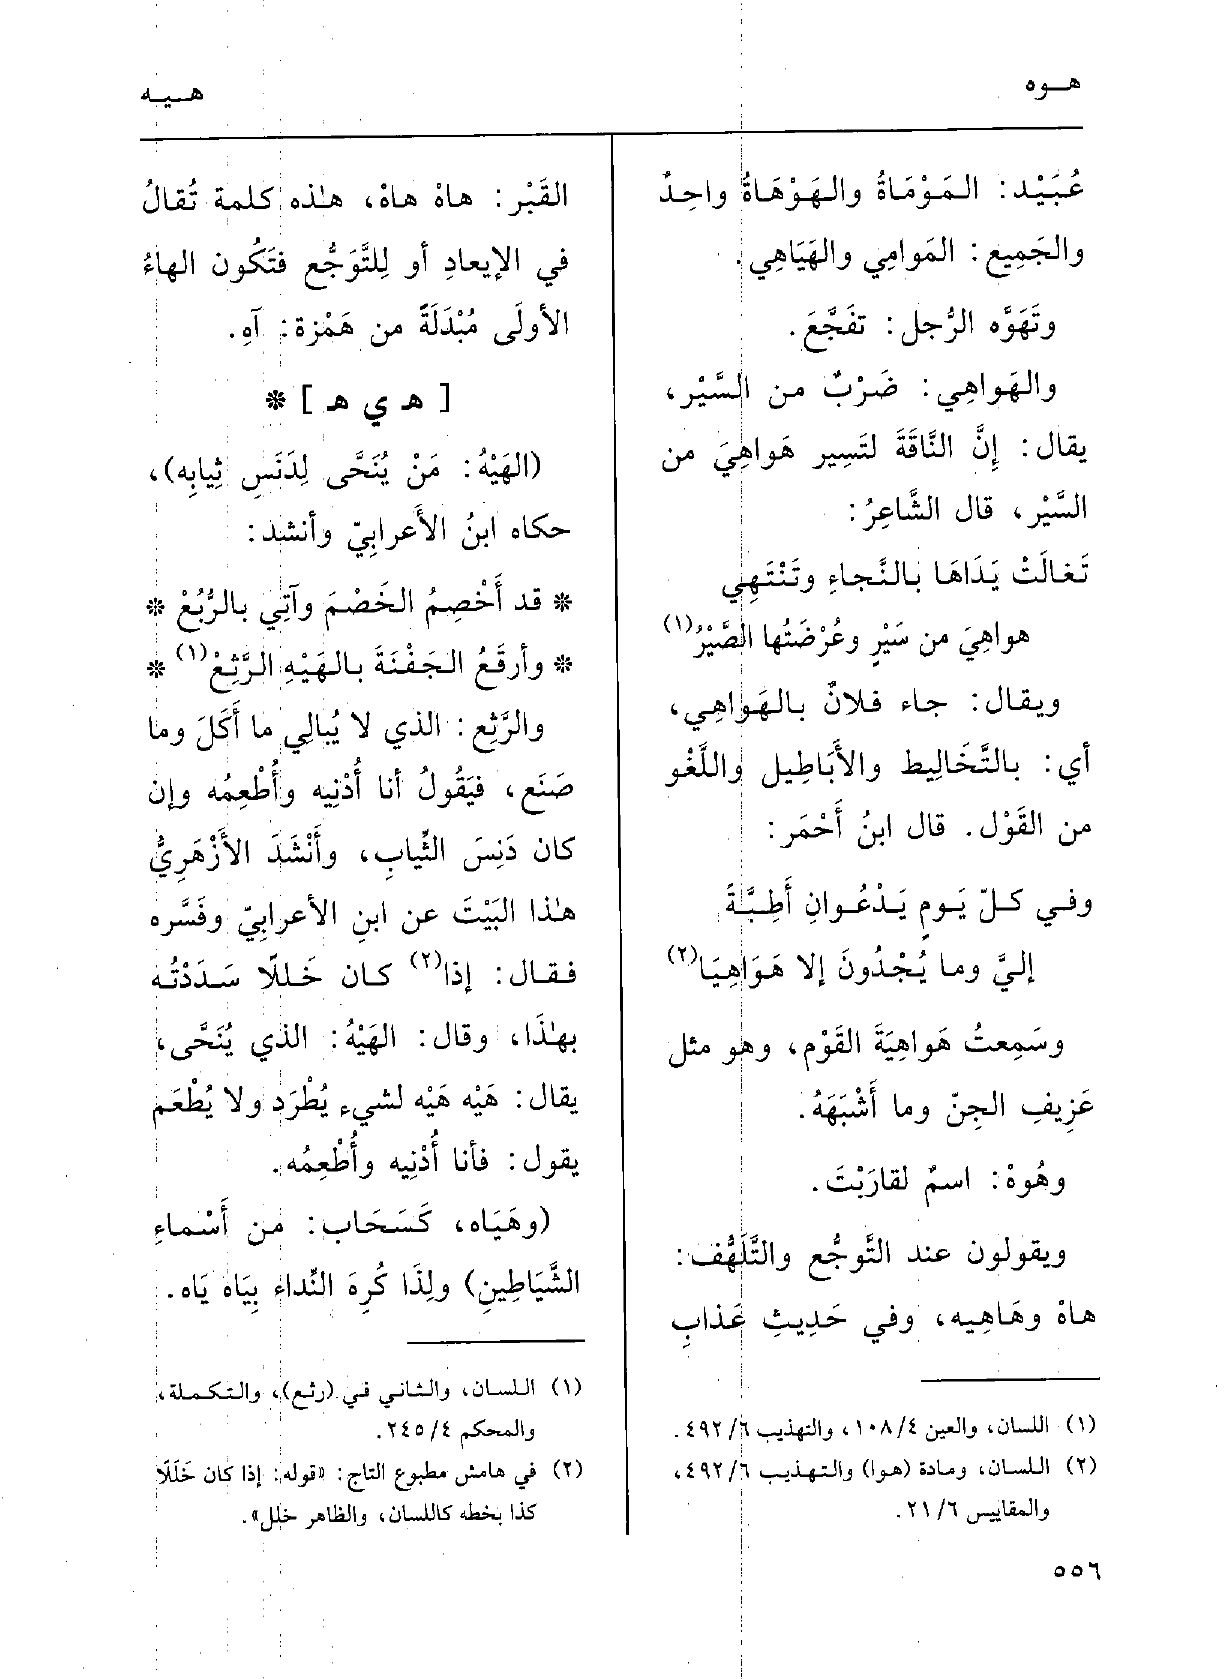 هـوه
هـيـه
عُبَيْد: المَوْمَاةُ والهَوْهَاةُ واحِدٌ
والجَمِيع: المَوامِي والهَيَاهِي.
وتَهَوَّه الرُّجل: تفَجَّعَ.
والهَواهِي: ضَرْبٌ من السَّيْر،
يقال: إِنَّ النَّاقَةَ لتَسِير هَواهِيَ من
السَّيْر، قال الشَّاعِرُ:
تَغالَتْ يَدَاهَا بالنَّجاءِ وتَنْتَهِي
هواهِيَ من سَيْرٍ وعُرْضَتُها الصَّبْرُ(١)
ويقال: جاء فلانٌ بالهَواهِي،
أي: بالتَّخَالِيط والأَبَاطِيل واللَّغْو
من القَوْل. قال ابنُ أَحْمَر:
وفي كلّ يَومٍ يَدْعُوانِ أَطِبَّةً
إليَّ وما يُجْدُونَ إلا هَوَاهِيَا(٢)
وسَمِعتُ هَواهِيَةَ القَوْمِ، وهو مثل
عَزِيفِ الجِنّ وما أَشْبَهَهُ.
وهُوهْ: اسمٌ لقارَبْتَ.
ويقولون عند التَّوجُّع والتَّلَهُّف:
هاهْ وهَاهِيه، وفي حَدِيثِ عَذابِ
(١) اللسان، والعين ١٠٨/٤، والتهذيب ٤٩٢/٦.
(٢) اللسان، ومادة (هوا) والتهذيب ٤٩٢/٦،
والمقاييس ٢١/٦.
القَبْر: هاهْ هاهْ، هٰذه كلمة تُقالُ
في الإيعادِ أو لِلتَّوَجُّع فتَكُون الهاءُ
الأولَى مُبْدَلَةً من هَمْزة: آهِ.
[ هـ ي هـ ] *
(الهَيْهُ: مَنْ يُنَحَّى لِدَنَسِ ثِيابِه)،
حكاه ابنُ الأَعرابِيّ وأنشد:
* قد أَخْصِمُ الخَصْمَ وآتِي بالرُّبُعْ *
* وأرقَعُ الجَفْنَةَ بالهَيْهِ الرَّثِعْ(١) *
والرَّثِع: الذي لا يُبالِي ما أَكَلَ وما
صَنَع، فيَقُولُ أنا أُدْنِيه وأُطْعِمُه وإن
كان دَنِسَ الثِّيابِ، وأَنْشَدَ الأَزْهَرِيُّ
هذا البَيْتَ عن ابنِ الأعرابِيّ وفَسَّره
فقال: إذا(٢) كان خَللًا سَدَدْتُه
بهٰذَا، وقال: الهَيْهُ: الذي يُنَحَّى،
يقال: هَيْه هَيْه لشيء يُطْرَد ولا يُطْعَم
يقول: فأنا أُدْنِيه وأُطْعِمُه.
(وهَيَاه، كَسَحَاب: من أَسْماءِ
الشَّيَاطِينِ) ولِذَا كُرِهَ النِّداء بِيَاه يَاه.
(١) اللسان، والثاني في (رثع)، والتكملة،
والمحكم ٢٤٥/٤.
(٢) في هامش مطبوع التاج: «قوله: إذا كان خَلَلًا
كذا بخطه كاللسان، والظاهر خلل».
٥٥٦